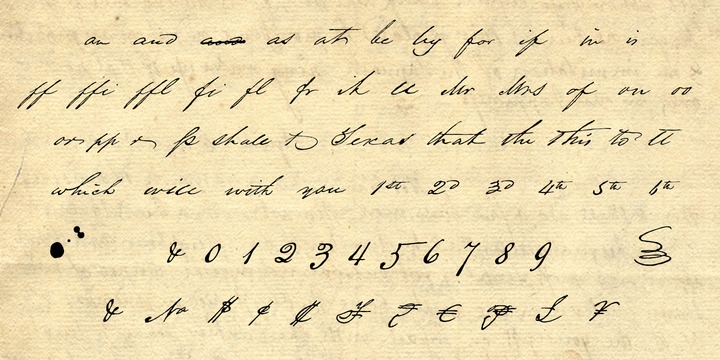 an and and as at be by for if in is
ff ffi ffl fi fl fr it ll Mr Mrs of on oo
or pp r ss shall to Texas that the this to tt
which will with you 1st 2d 3d 4th 5th 6th
& 0 1 2 3 4 5 6 7 8 9
& No $ ¢ ₡ ₣ € ₧ £ ¥